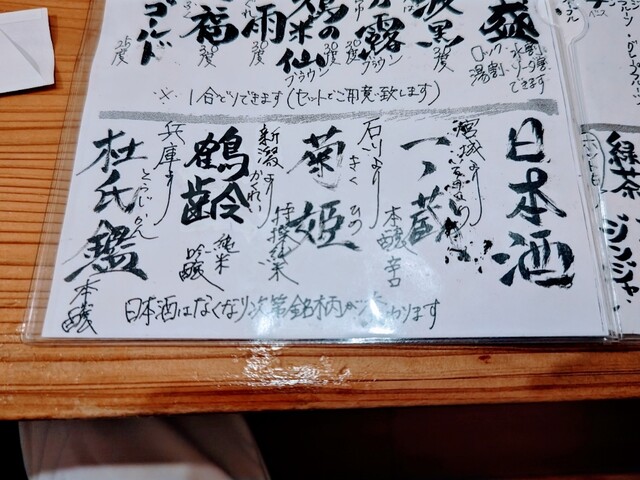 盛
ロック・水割
湯割・ソーダ割
できます
波黒
露
ブラウン
30度
米の仙
ブラウン
30度
雨
30度
福
30度
ゴールド
25度
※ 1合でもできます(セットでご用意致します)
日本酒
宮城より
一ノ蔵
本醸辛口
石川より
きくひめ
菊姫
特撰純米
新潟より
かくれい
鶴齢
純米
吟醸
兵庫より
とうじかん
杜氏鑑
本醸
日本酒はなくなり次第銘柄が変わります
緑茶
ジンジャー